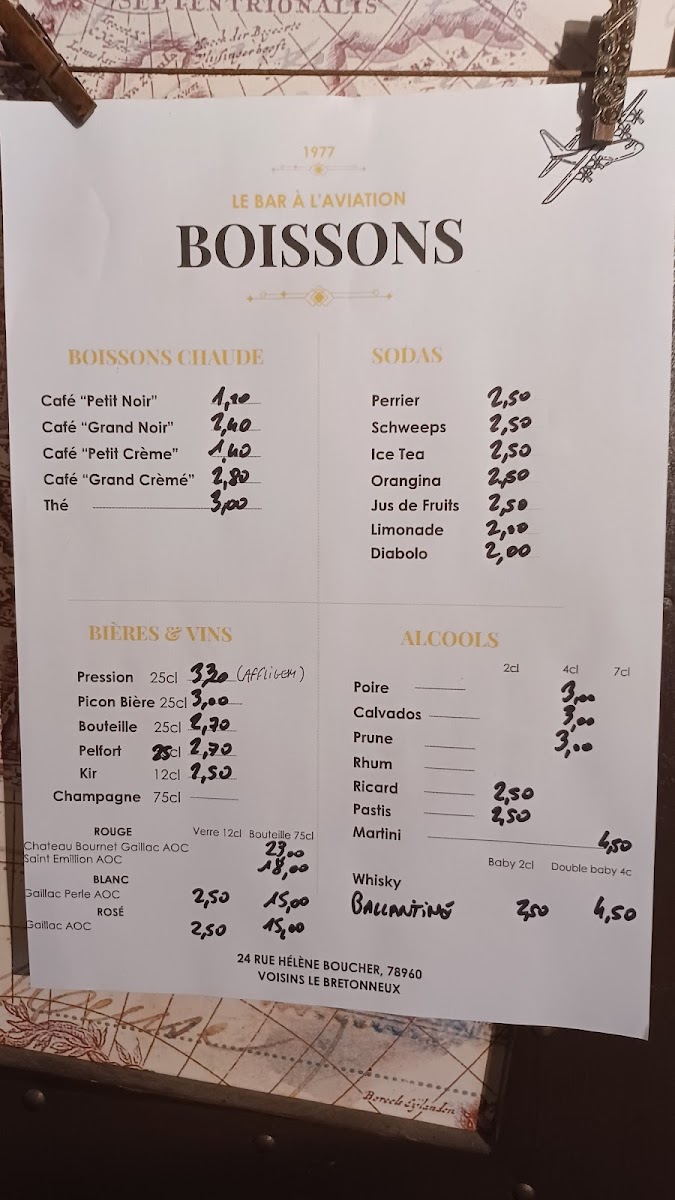 SEPTENTRIONALIS
1977
LE BAR À L'AVIATION
BOISSONS
BOISSONS CHAUDE
Café "Petit Noir" 1,20
Café "Grand Noir" 2,40
Café "Petit Crème" 1,40
Café "Grand Crèmé" 2,80
Thé 3,00
SODAS
Perrier 2,50
Schweeps 2,50
Ice Tea 2,50
Orangina 2,50
Jus de Fruits 2,50
Limonade 2,00
Diabolo 2,00
BIÈRES & VINS
Pression 25cl 3,20 (AFFLIGEM)
Picon Bière 25cl 3,00
Bouteille 25cl 2,70
Pelfort 25cl 2,70
Kir 12cl 2,50
Champagne 75cl
ROUGE Verre 12cl Bouteille 75cl
Chateau Bournet Gaillac AOC 23,00
Saint Emillion AOC 18,00
BLANC
Gaillac Perle AOC 2,50 15,00
ROSÉ
Gaillac AOC 2,50 15,00
ALCOOLS
2cl 4cl 7cl
Poire 3,00
Calvados 3,00
Prune 3,00
Rhum
Ricard 2,50
Pastis 2,50
Martini 4,50
Baby 2cl Double baby 4c
Whisky
BALLANTINE 2,50 4,50
24 RUE HÉLÈNE BOUCHER, 78960
VOISINS LE BRETONNEUX